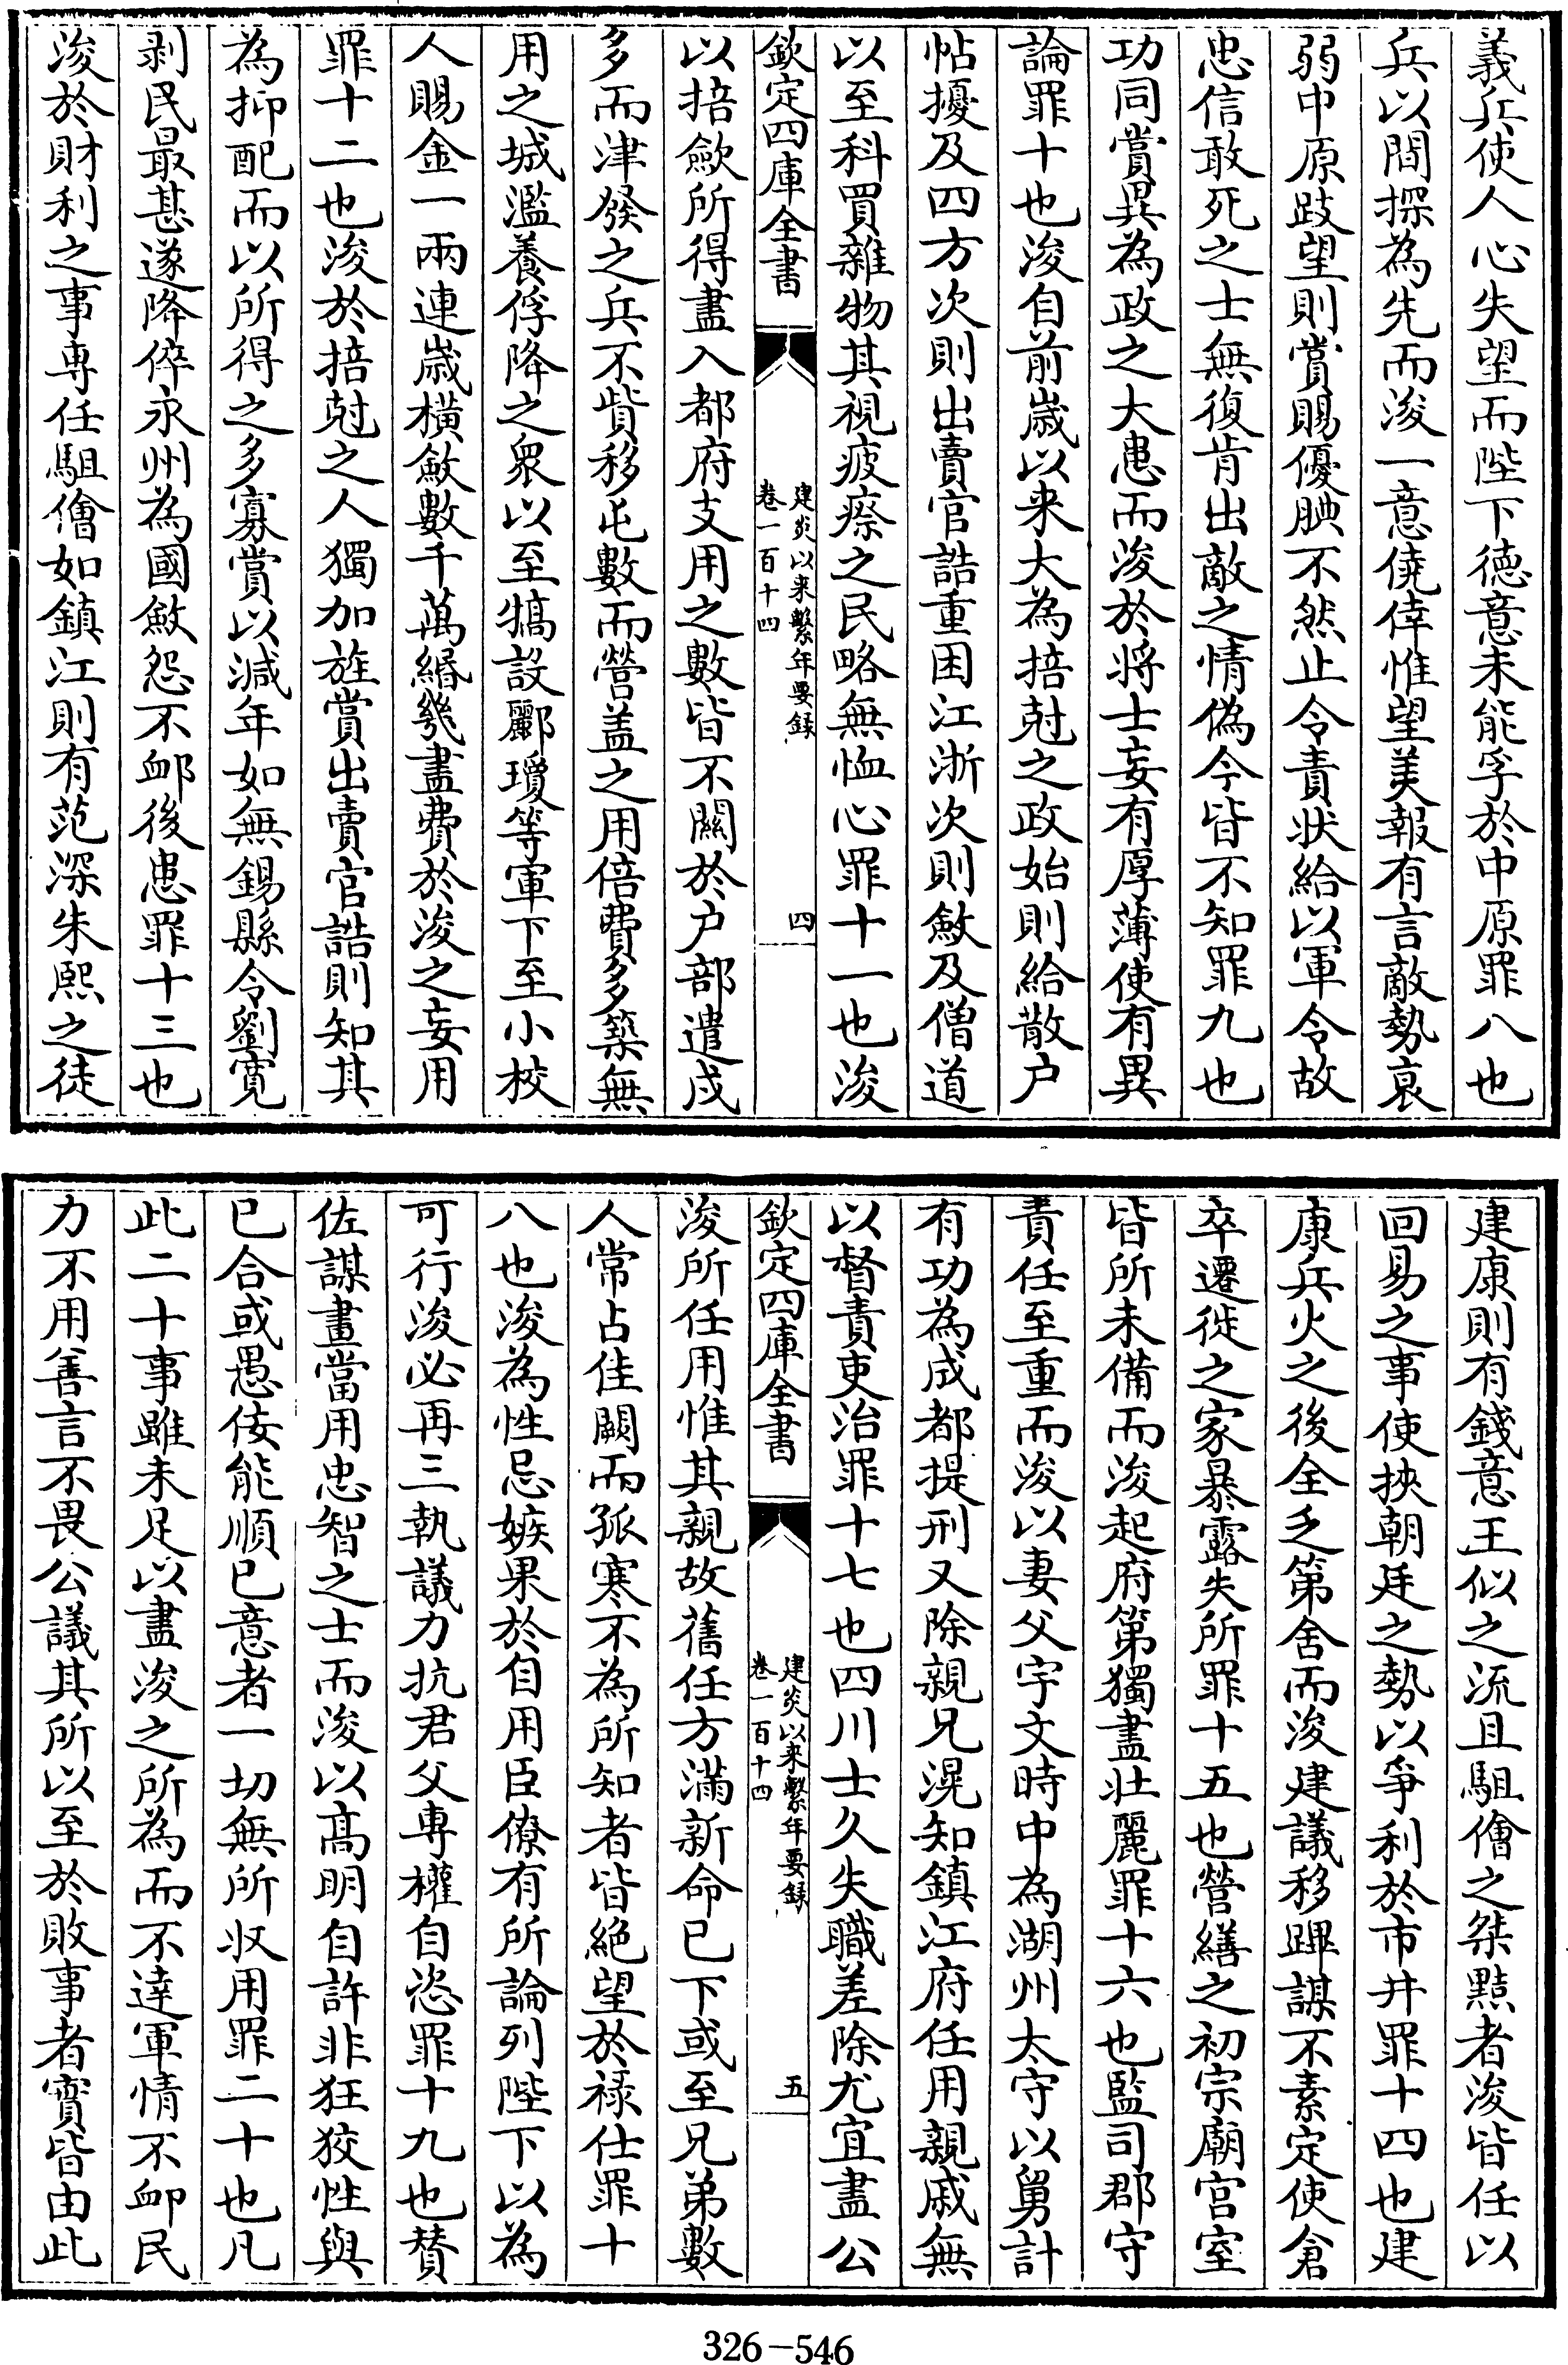 義兵使人心失望而陛下徳意未能孚於中原罪八也
兵以間探為先而浚一意僥倖惟望美報有言敵勢哀
弱中原跂望則賞賜優腆不然止令責狀給以軍令故
忠信敢死之士無復肯出敵之情偽今皆不知罪九也
功同賞異為政之大患而浚於将士妄有厚薄使有異
論罪十也浚自前嵗以来大為掊尅之政始則給散户
帖擾及四方次則出賣官誥重困江浙次則斂及僧道
以至科買雜物其視疲瘵之民略無恤心罪十一也浚
欽定四庫全書
建炎以来繫年要録
卷一百十四
四
以掊歛所得盡入都府支用之數皆不關於户部遣戍
多而津發之兵不貲移屯數而營葢之用倍費多築無
用之城濫養俘降之衆以至犒設酈瓊等軍下至小校
人賜金一兩連嵗橫斂數千萬緡幾盡費於浚之妄用
罪十二也浚於掊尅之人獨加旌賞出賣官誥則知其
為抑配而以所得之多寡賞以減年如無錫縣令劉寛
剥民最甚遂降倅永州為國斂怨不䘏後患罪十三也
浚於財利之事専任駔儈如鎮江則有范深朱熙之徒
建康則有錢意王似之流且駔儈之桀黠者浚皆任以
回易之事使挾朝廷之勢以爭利於市井罪十四也建
康兵火之後全乏第舍而浚建議移蹕謀不素定使倉
卒遷徙之家暴露失所罪十五也營繕之初宗廟宫室
皆所未備而浚起府第獨盡壯麗罪十六也監司郡守
責任至重而浚以妻父宇文時中為湖州太守以舅計
有功為成都提刑又除親兄滉知鎮江府任用親戚無
以督責吏治罪十七也四川士久失職差除尤宜盡公
欽定四庫全書
建炎以来繫年要録
卷一百十四
五
浚所任用惟其親故舊任方滿新命已下或至兄弟數
人常占佳闕而孤寒不為所知者皆絶望於禄仕罪十
八也浚為性忌嫉果於自用臣僚有所論列陛下以為
可行浚必再三執議力抗君父專權自恣罪十九也賛
佐謀畫當用忠智之士而浚以髙明自許非狂狡性與
已合或愚佞能順已意者一切無所収用罪二十也凡
此二十事雖未足以盡浚之所為而不達軍情不䘏民
力不用善言不畏公議其所以至於敗事者實皆由此
326-546